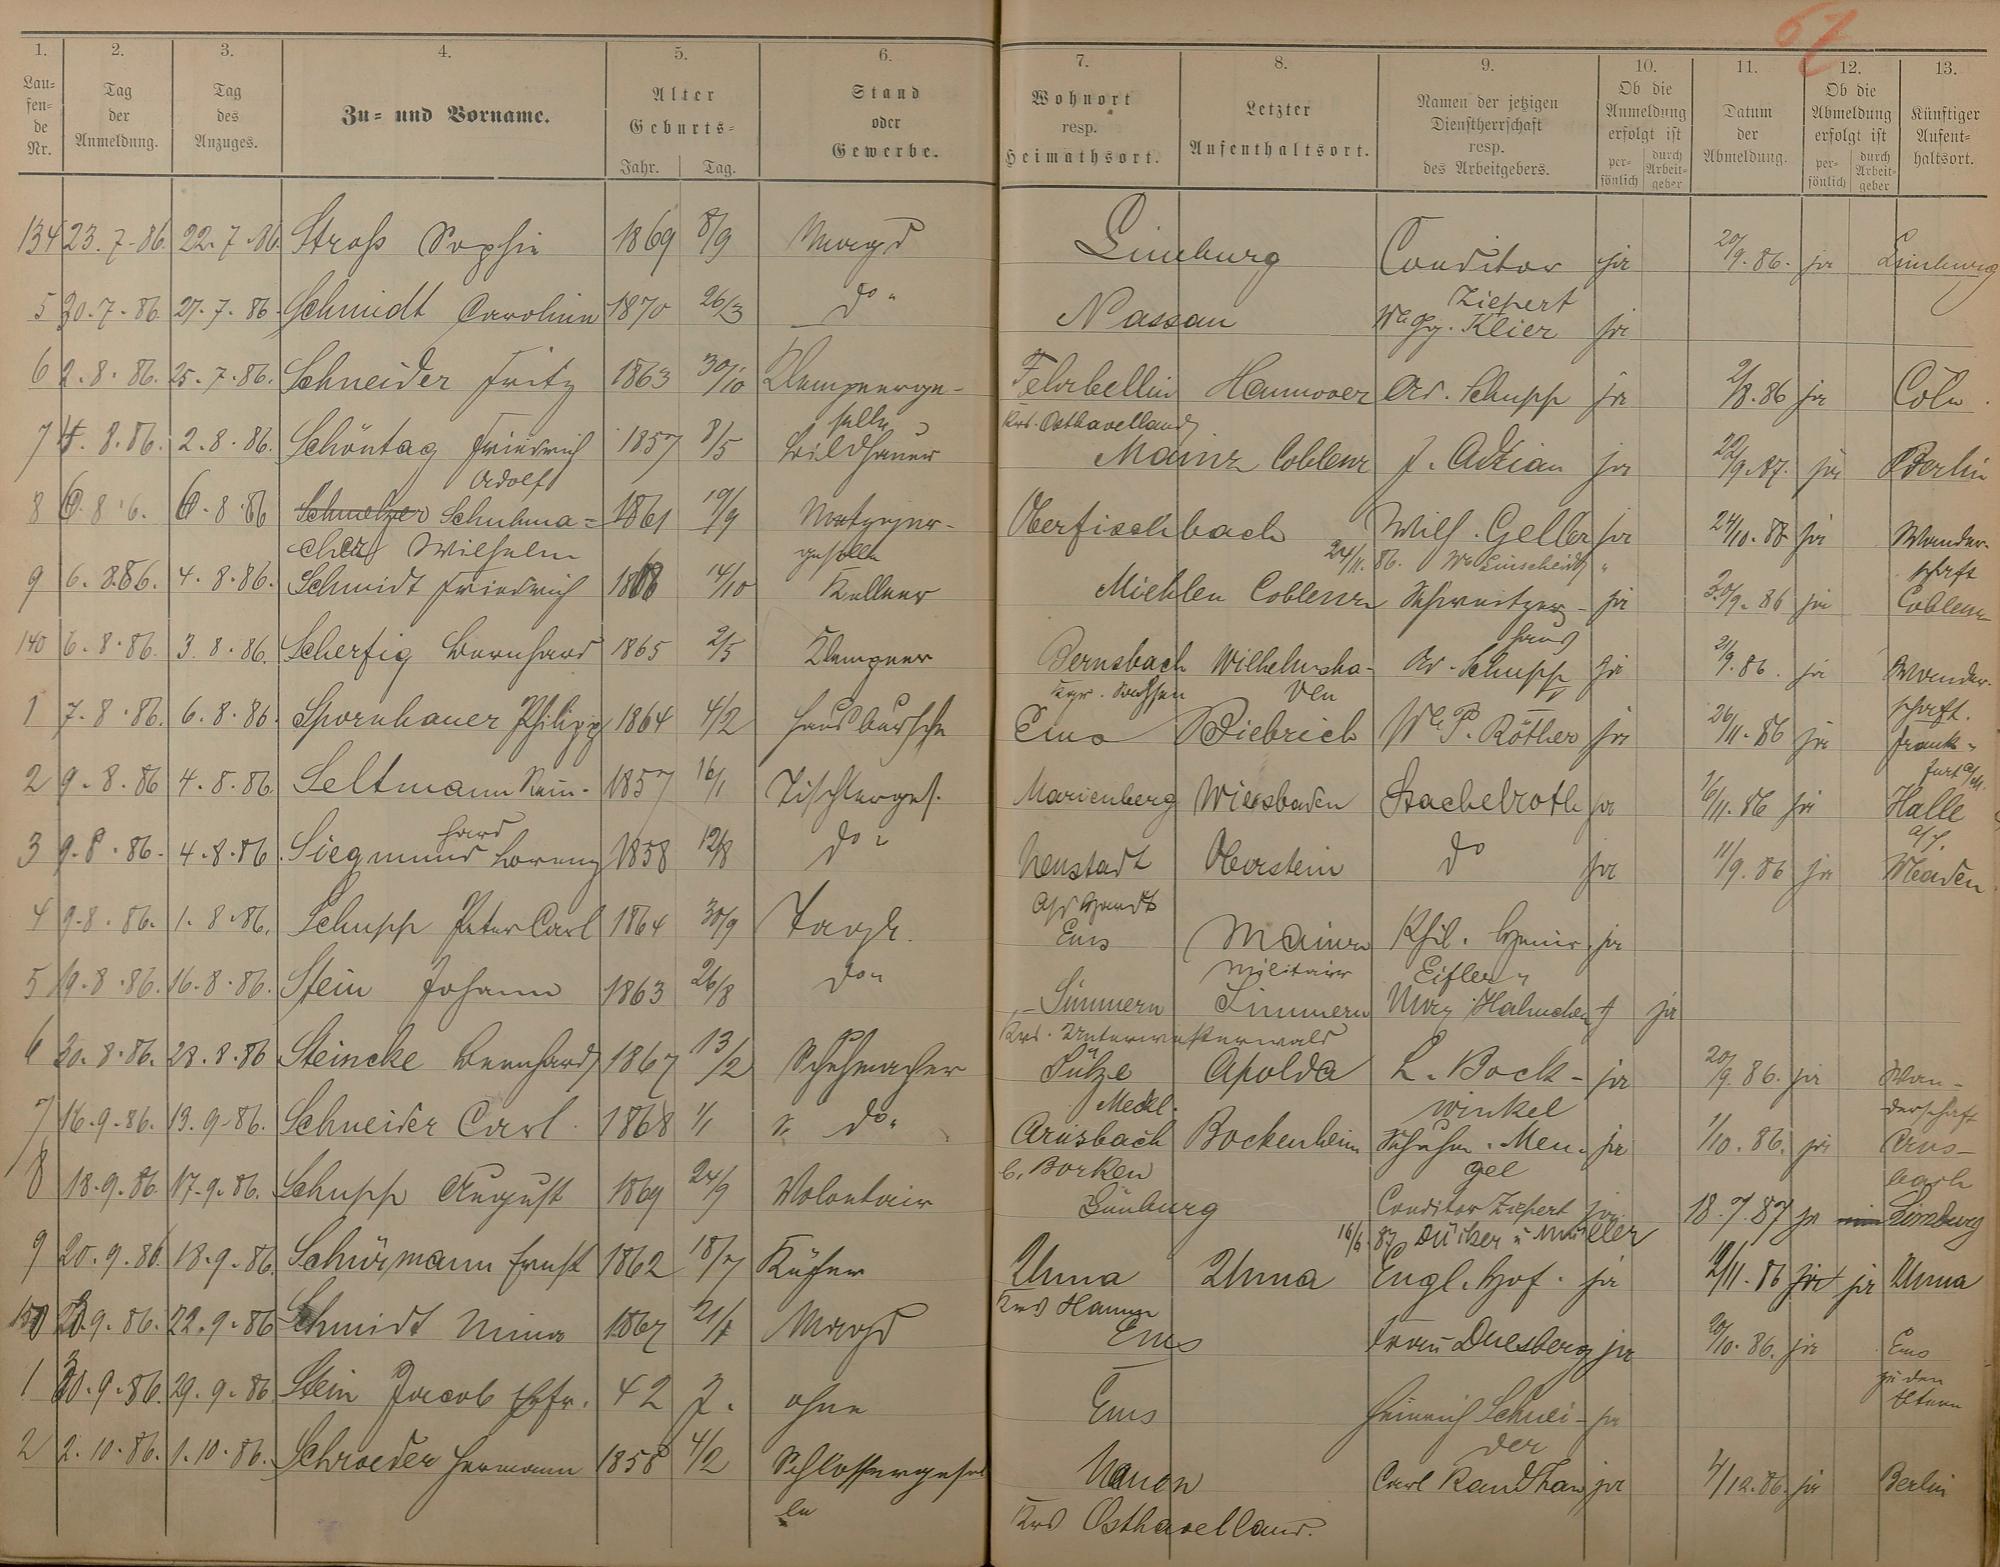 67
1. 2. 3. 4. 5. 6. 7. 8. 9. 10. 11. 12. 13.
Laufende Nr. Tag der Anmeldung. Tag des Anzuges. Zu= und Vorname. Alter Geburts= Jahr. Tag. Stand oder Gewerbe. Wohnort resp. Heimathsort. Letzter Aufenthaltsort. Namen der jetzigen Dienstherrschaft resp. des Arbeitgebers. Ob die Anmeldung erfolgt ist per=sönlich durch Arbeit=geber Datum der Abmeldung. Ob die Abmeldung erfolgt ist per=sönlich durch Arbeit=geber Künftiger Aufent=haltsort.
134 23.7.86. 22.7.86. Stroh Sophie 1869 8/9 Magd Limburg Conditor ja 20/9.86. ja Limburg
Ziepert
5 30.7.86 27.7.86. Schmidt Caroline 1870 26/3 do. Nassau We Gg. Klier ja
6 2.8.86. 25.7.86. Schneider Fritz 1863 30/10 Klempnerge- Fehrbellin Hannover Ad. Schupp ja 2/8.86 ja Cöln
selle Krs. Osthavelland
7 4.8.86. 2.8.86. Schöntag Friedrich 1857 8/5 Bildhauer Mainz Coblenz J. Adrian ja 22/9.87. ja Berlin
Adolf
8 6.8.6. 6.8.86 Schmelzer Schuhma= 1861 19/9 Metzger- Oberfischbach Wilh. Geller ja 24/10.88 ja Wander-
cher Wilhelm geselle 24/11.86. We Linscheidt " schaft
9 6.8.86. 4.8.86. Schmidt Friedrich 1868 14/10 Kellner Miehlen Coblenz Schweitzer- ja 30/9.86 ja Coblenz
haus
140 6.8.86. 3.8.86. Scherfig Bernhard 1865 2/5 Klempner Bernsbach Wilhelmsha- Ad. Schupp ja 21/9.86. ja Wander-
Kgr. Sachsen ven schaft.
1 7.8.86. 6.8.86. Spornhauer Philipp 1864 4/2 Hausbursche Ems Biebrich We P. Röther ja 26/11.86 ja Frank-
furt a/M.
2 9.8.86 4.8.86. Seltmann Rein- 1857 16/1 Tischlerges. Marienberg Wiesbaden Stachelroth ja 16/11.86 ja Halle
hard a/S.
3 9.8.86. 4.8.86. Siegmund Lorenz 1858 12/8 do. Neustadt Oberstein do ja 11/9.86 ja Minden
a/d Haardt
4 9.8.86. 1.8.86. Schupp Peter Carl 1864 30/9 Taglr. Ems Mainz Phil. Heinr. ja
Militair Eifler
5 19.8.86. 16.8.86. Stein Johann 1863 26/8 do. Simmern Simmern Mrg. Hahnchen ja
Krs. Unterwesterwald
6 30.8.86. 28.8.86 Steincke Bernhard 1867 13/2 Schuhmacher Sülze Apolda L. Bock- ja 20/9.86. ja Wan-
Meckl. winkel derschaft
7 16.9.86. 13.9.86. Schneider Carl 1868 1/1 " do. Arnsbach Bockenheim Schuhm. Men- ja 1/10.86. ja Arns-
b. Borken gel bach
8 18.9.86. 17.9.86. Schupp August 1869 24/9 Volontair Limburg Conditor Ziepert ja 18.7.87 ja Limburg
16/6.87 Dücker u Mueller
9 20.9.86. 18.9.86. Schürmann Ernst 1862 18/7 Küfer Unna Unna Engl. Hof. ja 10/11.86 ja Unna
Krs Hamm
150 23.9.86. 22.9.86 Schmidt Mina 1867 21/7 Magd Ems Frau Duesberg ja 20/10.86. ja Ems
zu den Eltern
1 30.9.86. 29.9.86 Stein Jacob Ehefr. 42 J. ohne Ems Heinrich Schnei- ja
der
2 2.10.86. 1.10.86. Schroeder Hermann 1858 4/2 Schlossergesel Nauen Carl Randhan ja 4/12.86. ja Berlin
le Krs Osthavelland.